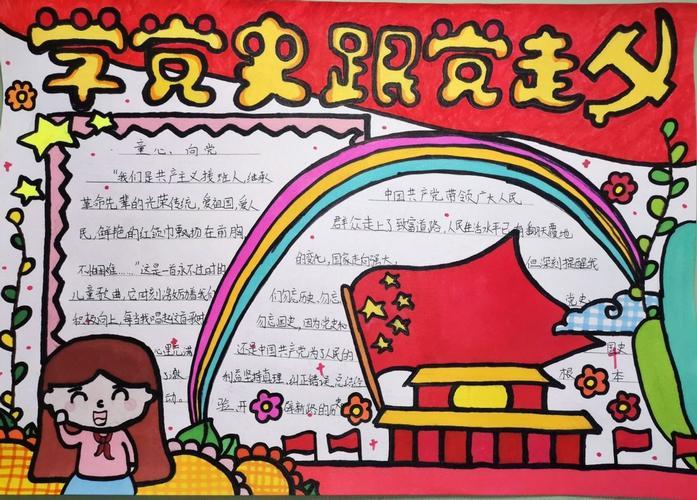 学党史跟党走
童心向党
“我们是共产主义接班人,继承
革命先辈的光荣传统,爱祖国,爱人
民,鲜艳的红领巾飘扬在前胸
不怕困难……”这是一首永不过时的
儿童歌曲,它时刻激励着我们
积极向上,每当我唱起这首歌时
心里充满
了激
动。
中国共产党带领广大人民
群众走上了致富道路,人民生活水平已有翻天覆地
的变化,国家走向强大,但深刻提醒我
们勿忘历史,勿忘党史
勿忘国史,因为党史和国史
还是中国共产党为了人民的根本
利益坚持真理,纠正错误,总结经
验,开新路的历史